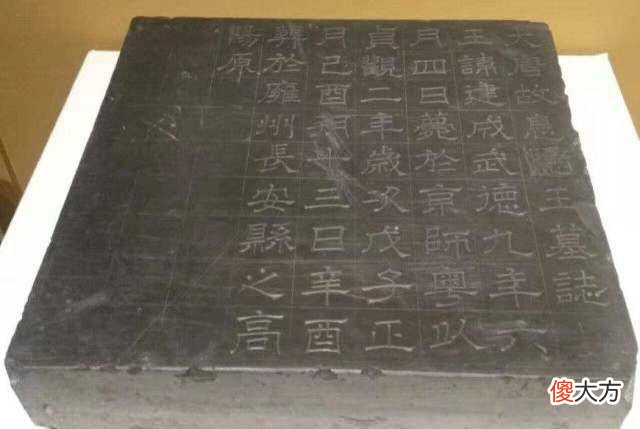 大唐故息隱王墓誌
王諱建成武德九年六
月四日薨於京師粵以
貞觀二年歲次戊子正
月己酉朔十三日辛酉
葬於雍州長安縣之高
陽原
傻大方